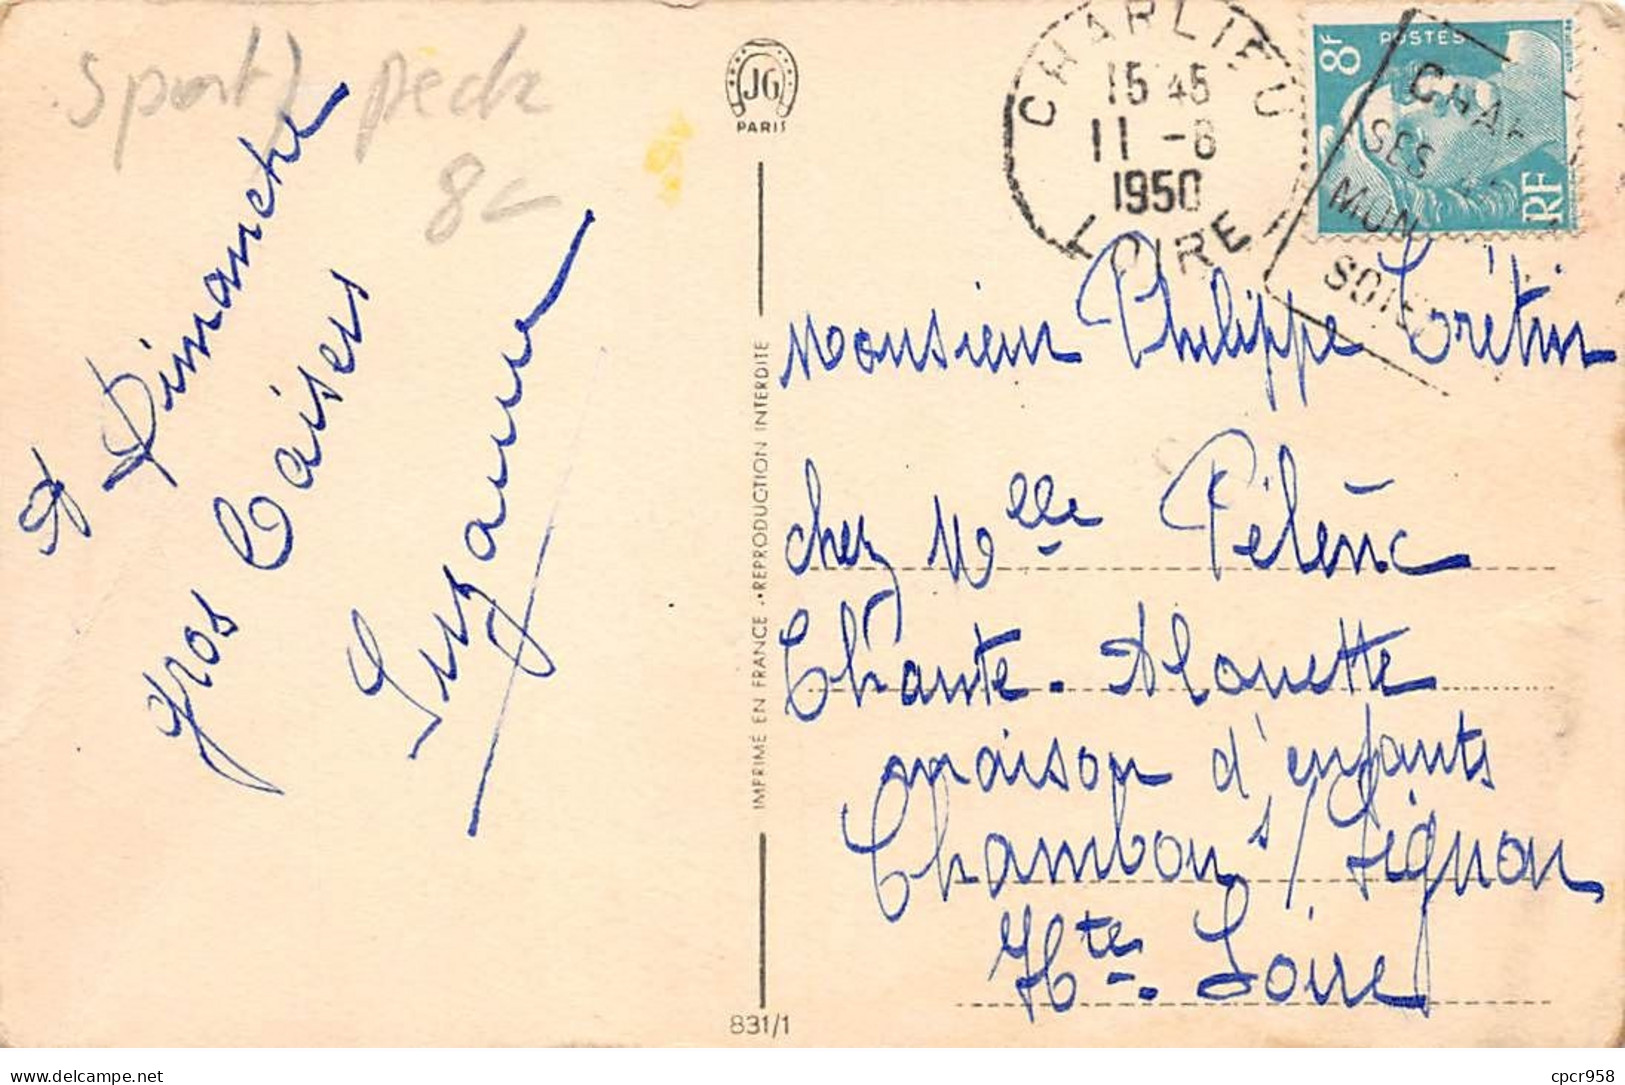 Sport) peche
8€
à Dimanche
gros Baisers
Suzanne
JG
PARIS
IMPRIMÉ EN FRANCE - REPRODUCTION INTERDITE
831/1
CHARLIEU
15 45
11 -8
1950
LOIRE
8F POSTES
RF
SES
MON
Monsieur Philippe Crétin
chez Mlle Pélenc
Chante-Alouette
maison d'enfants
Chambon s/ Lignon
Hte Loire
Delcampe.net
cpcr958